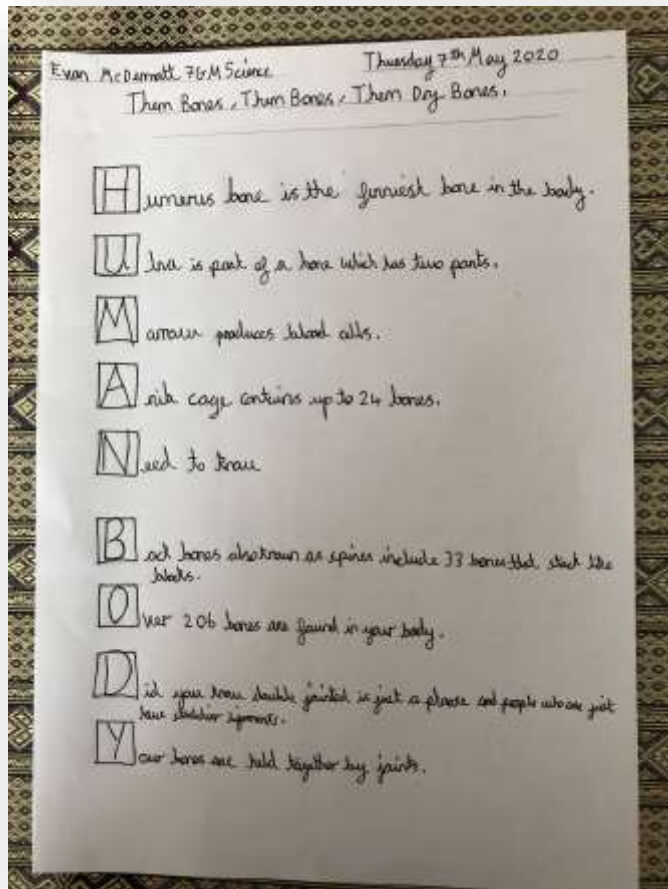 Evan McDermott 7GM Science Thursday 7th May 2020
Them Bones, Them Bones, Them Dry Bones.
Humerus bone is the funniest bone in the body.
Ulna is part of a bone which has two parts.
Marrow produces blood cells.
A rib cage contains up to 24 bones.
Need to know
Back bones also known as spines include 33 bones that stack like
blocks.
Over 206 bones are found in your body.
Did you know double jointed is just a phrase and people who are just
have
Your bones are held together by joints.